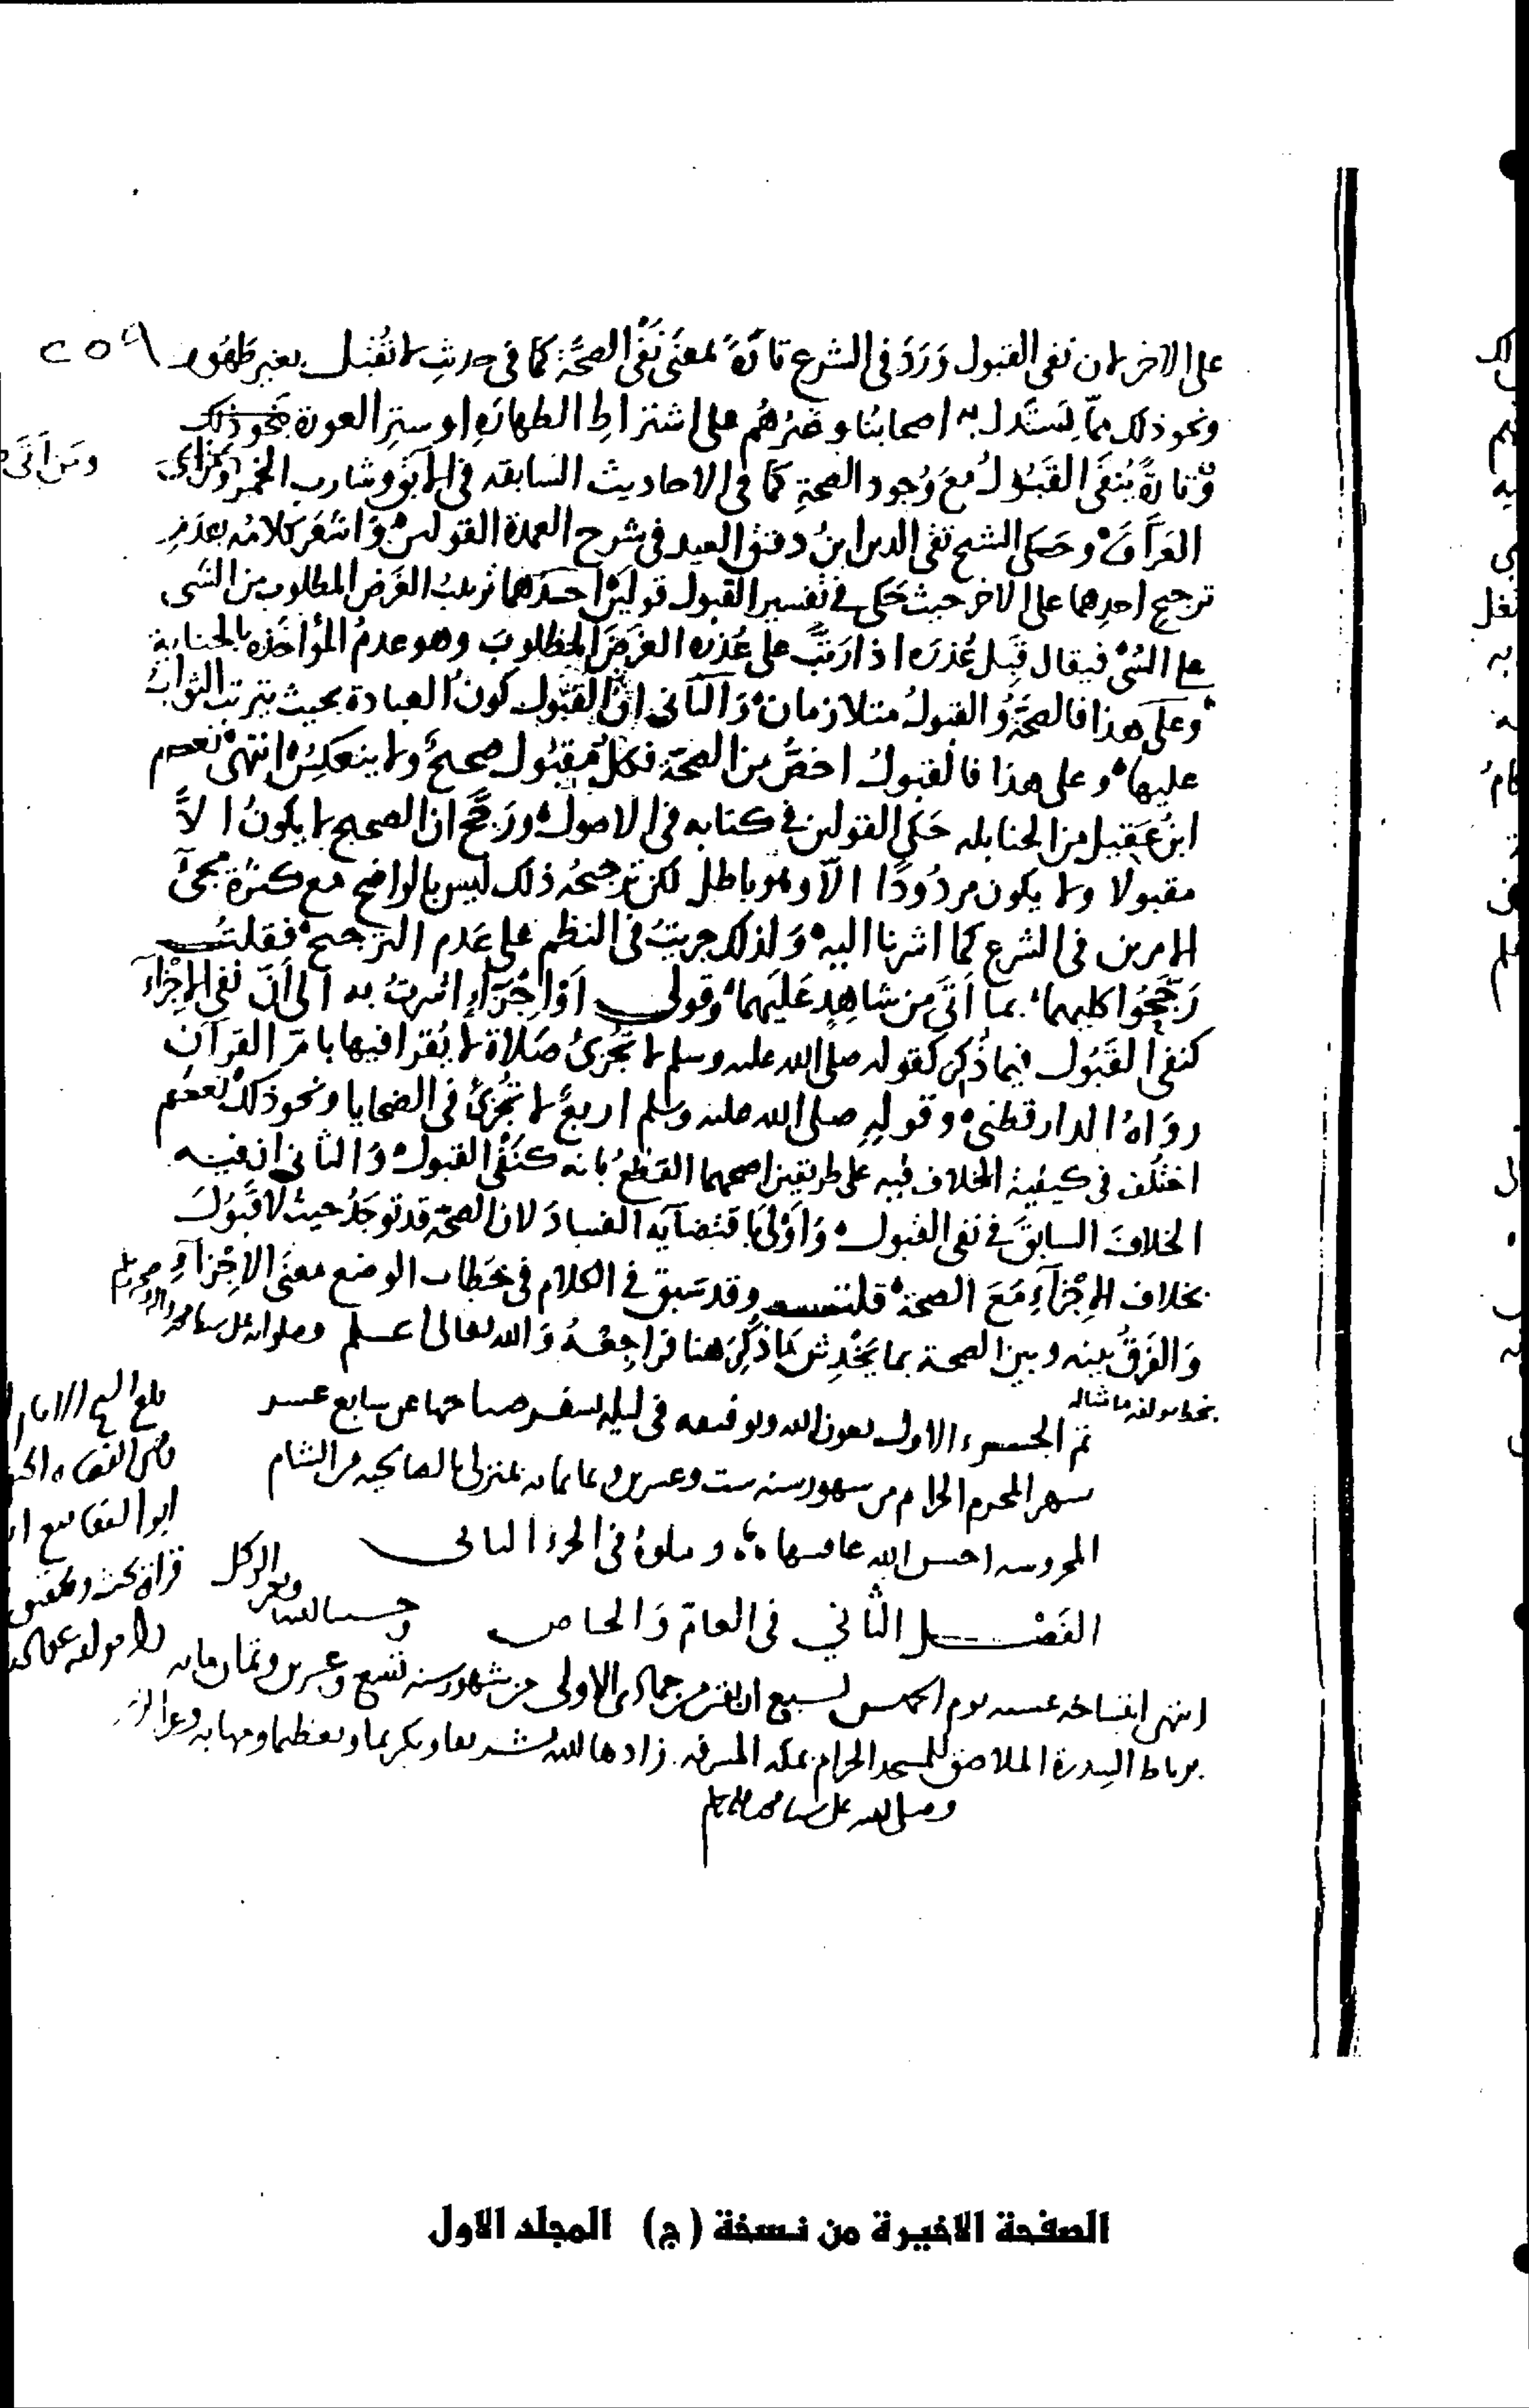 ٢٥٩
على الاخر لان نفى القبول وَرَدَ فى الشرع تارةً بمعنَى نَفْى الصحَّة كما فى حديثِ لا تُقبل بغير طَهُور
ونحو ذلك ممّا يَستَدل به اصحابنا وغيرُهُم على اشتراطِ الطهارَةِ او ستر العورة نحو ذلك
وتارةً يُنفَى القَبُولُ مَعَ وُجود الصحةِ كما فى الاحاديث السابقه فى الآبق وشارب الخمر
ومَن اَتَى
العَرّافَ وحكى الشيخ تقى الدين ابنُ دقيق العيد فى شرح العمدة القولين وَاشعَر كلامُه بعَدَم
ترجيح احدِهما على الاخر حيث حَكى فى تفسير القبول قولين احدهما ترتب الغَرض المطلوب من الشى
على الشئ فيقال قَبِل عُذرَه اذا رَتَّبَ على عُذرِه الغرَضَ المطلوبَ وهو عدمُ المؤاخَذه بالجناية
وعلى هذا فالصحَّةُ والقبولُ متلازمان وَالثانى انّ القَبُول كونُ العبادة بحيث يترتب الثوابُ
عليها وعلى هذا فالقبولُ اخصُّ من الصحَّة فكلُّ مقبُول صحيحٌ ولا ينعكِسُ انتهى نعم
ابنُ عَقِيل من الحنابله حَكى القولين فى كتابه فى الاصول ورَجَّح ان الصحيح لا يكونُ الاَّ
مقبولا ولا يكون مردُودًا الاّ وهو باطل لكن ترجيحُه ذلك ليس بالواضح مع كثرة مجئ
الامرين فى الشرع كما اشرنا اليه وَلذلك جريتُ فى النظم على عَدم الترجيح فقلت
رَجَّحُوا كليهما بما اَتَى مِن شاهِدٍ عَلَيهما وقولى اَوْ اِجْزَاءٍ اشرتُ به الى اَنّ نفى الاِجْزَآءِ
كنفى القَبُول فيما ذُكِر كقوله صلى الله عليه وسلم لا تُجزئُ صَلاةٌ لا يُقرا فيها بامّ القرآن
روَاهُ الدارقطنى وقولِهِ صلى الله عليه وسلم اربعٌ لا تُجزئُ فى الضحايا ونحو ذلك نعم
اختُلف فى كيفية الخلاف فيه على طريقين اصحهما القطعُ بانه كنَفْى القبول وَالثانى ان فيه
الخلافَ السابقَ فى نفى القبول وَاَوْلَى باقتضآيِه الفسادَ لان الصحّة قد توجَدُ حيث لا قَبُولَ
بخلاف الاِجْزَآءِ مَعَ الصحة قلت وقد سَبق فى الكلام فى خطاب الوضع معنَى الاِجْزَآءِ
وَالفرقُ بينه وبين الصحة بما يَخْدِش ما ذُكِرَ هنا فراجِعْهُ وَالله تعالى اعلم
بخط مولفه ما مثاله
تم الجزء الاول بعون الله وتوفيقه فى ليله يسفر صباحها عن سابع عشر
شهر المحرم الحرام من شهور سنه ست وعشرين وثمانمائه بمنزلى بالصالحيه من الشام
المحروسه احسن الله عاقبتها وتلوهُ فى الجزء الثانى
الفَصْل الثاني فى العامّ وَالخاص
وحسبنا الله ونعم الوكيل
بلغ الشيخ الامام
انتهى انتساخه عشيه يوم الخميس لسبع ان بقين من جمادى الاولى من شهور سنه تسع وعشرين وثمان مايه
برباط السِدرة الملاصق للمسجد الحرام بمكه المشرفه زادها الله تشريفا وتكريما وتعظيما ومهابه
وصلى الله على سيدنا محمد
الصفحة الاخيرة من نسخة (ج) المجلد الاول